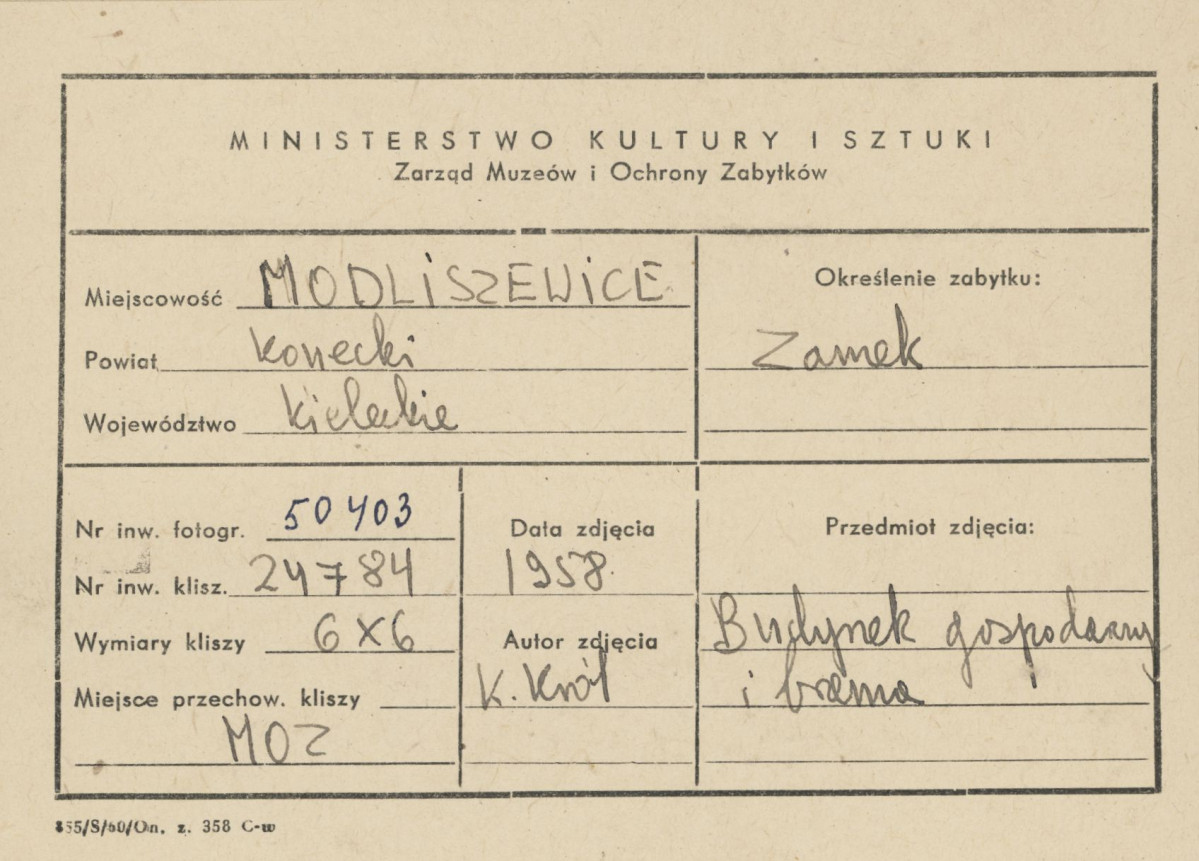 MINISTERSTWO KULTURY I SZTUKI
Zarząd Muzeów i Ochrony Zabytków
Miejscowość MODLISZEWICE
Powiat Konecki
Województwo Kieleckie
Określenie zabytku:
Zamek
Nr inw. fotogr. 50403
Nr inw. klisz. 24784
Wymiary kliszy 6x6
Miejsce przechow. kliszy
MOZ
Data zdjęcia
1958.
Autor zdjęcia
K. Król
Przedmiot zdjęcia:
Budynek gospodarczy
i brama
z. 358 C-w